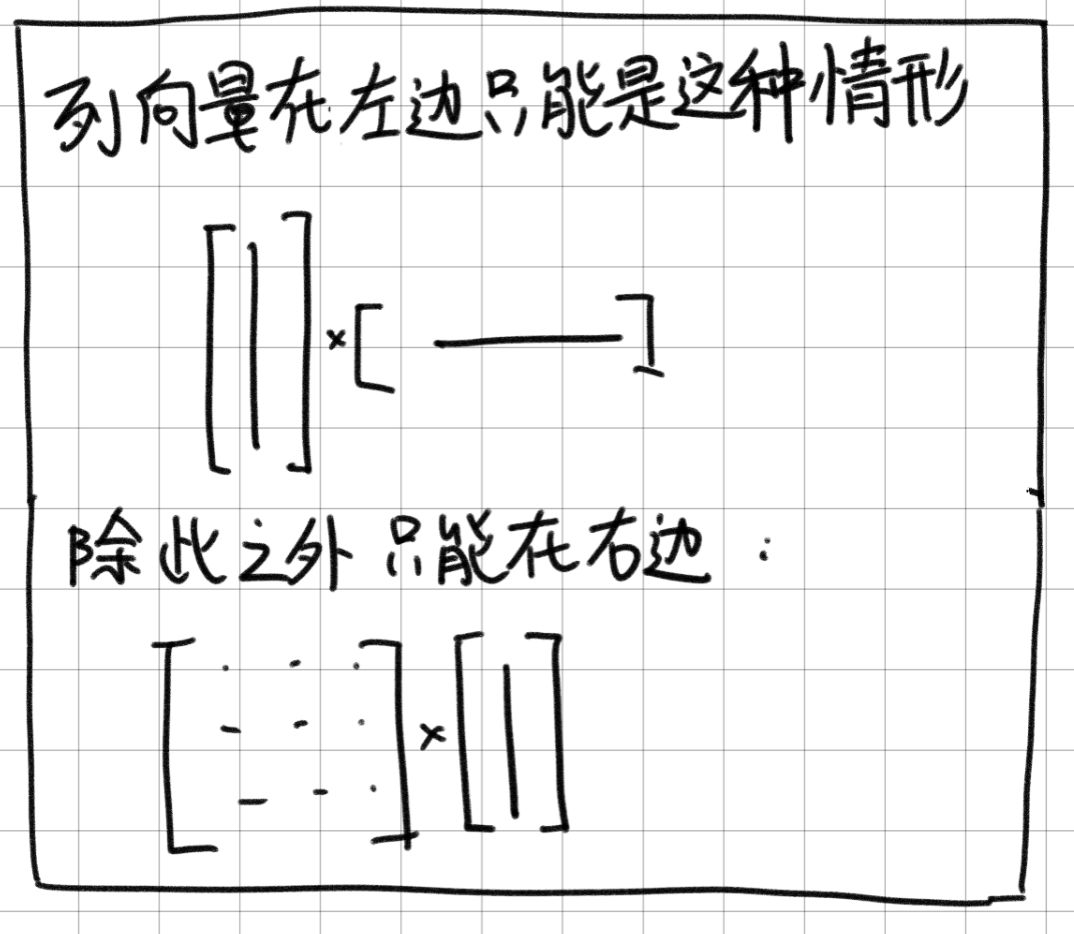 列向量在左边只能是这种情形
×
除此之外只能在右边：
×